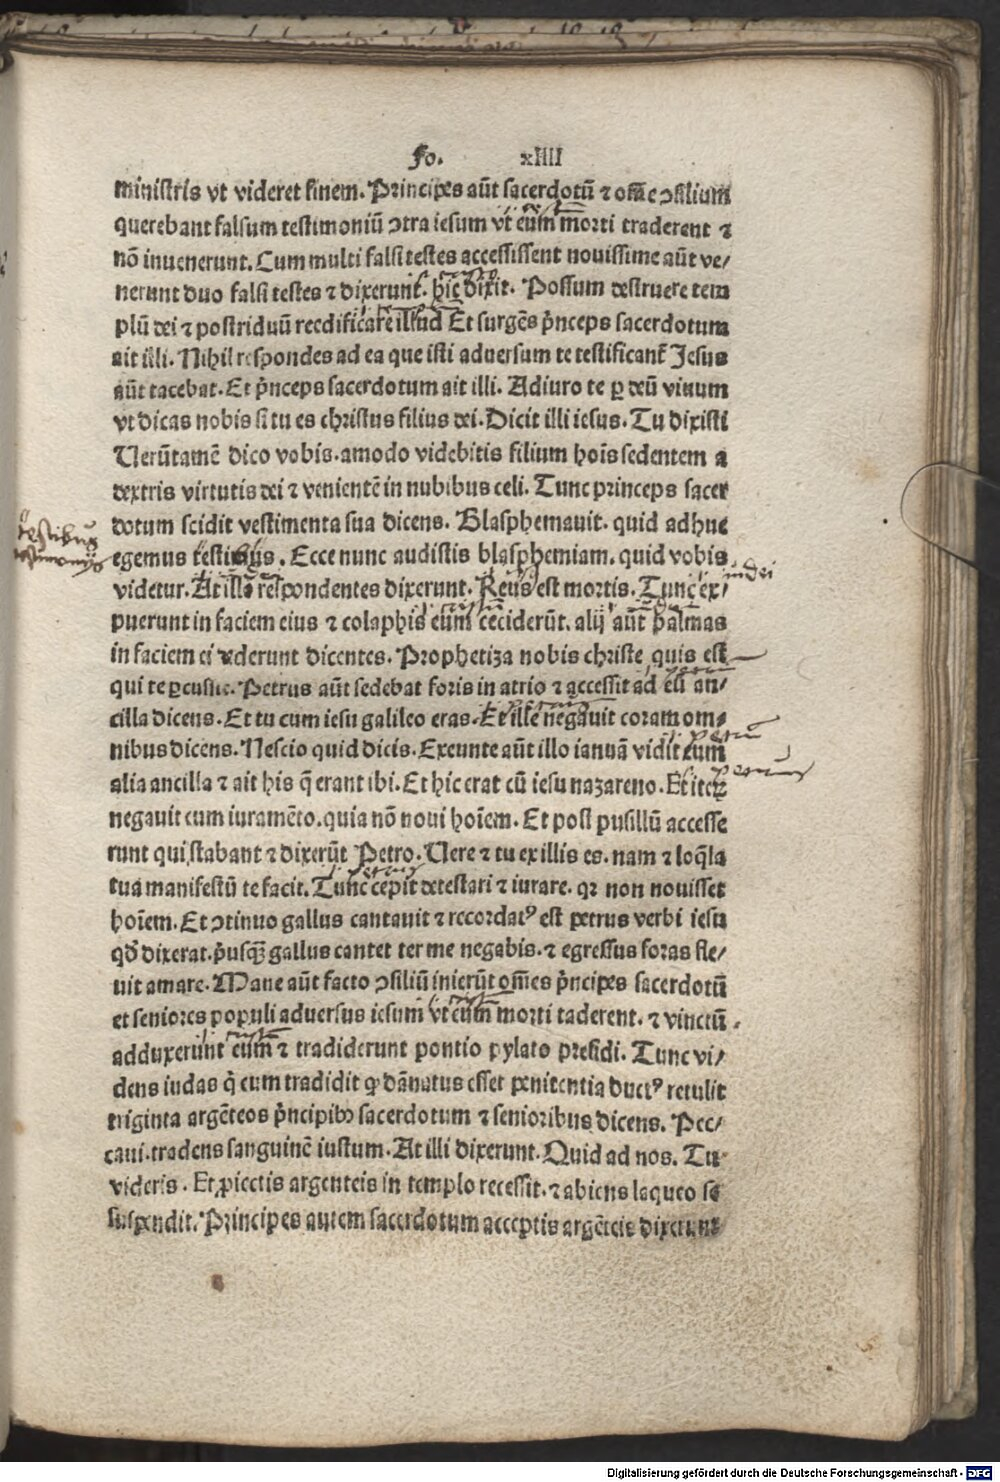 fo. xiiii
ministris vt videret finem. Principes aūt sacerdotū ⁊ om̄e ↄsilium
querebant falsum testimoniū ↄtra iesum vt eum morti traderent ⁊
nō inuenerunt. Cum multi falsi testes accessissent nouissime aūt ve/
nerunt duo falsi testes ⁊ dixerunt. hic dixit. Possum destruere tem
plū dei ⁊ post triduū reedificare illud Et surgēs p̄nceps sacerdotum
ait illi. Nihil respondes ad ea que isti aduersum te testificant̄ Jesus
aūt tacebat. Et p̄nceps sacerdotum ait illi. Adiuro te ꝑ deū viuum
vt dicas nobis si tu es christus filius dei. Dicit illi iesus. Tu dixisti
Uerūtamē dico vobis. amodo videbitis filium hoīs sedentem a
dextris virtutis dei ⁊ venientē in nubibus celi. Tunc princeps sacer
dotum scidit vestimenta sua dicens. Blasphemauit. quid adhuc
testibus
egemus testibus. Ecce nunc audistis blasphemiam. quid vobis
videtur. At illi respondentes dixerunt. Reus est mortis. Tunc ex/
iudei
puerunt in faciem eius ⁊ colaphis eum ceciderūt. alij aūt palmas
in faciem ei dederunt dicentes. Prophetiza nobis christe quis est
qui te ꝑcussit. Petrus aūt sedebat foris in atrio ⁊ accessit ad eū an/
cilla dicens. Et tu cum iesu galileo eras. Et ille negauit coram om/
nibus dicens. Nescio quid dicis. Exeunte aūt illo ianuā vidit eum
petrum
alia ancilla ⁊ ait his q̄ erant ibi. Et hic erat cū iesu nazareno. Et iteꝝ
negauit cum iuramēto. quia nō noui hoīem. Et post pusillū accesse
runt qui stabant ⁊ dixerūt Petro. Uere ⁊ tu ex illis es. nam ⁊ loq̄la
tua manifestū te facit. Tunc cepit detestari ⁊ iurare. qꝛ non nouisset
hoīem. Et ↄtinuo gallus cantauit ⁊ recordatꝰ est petrus verbi iesu
qd̄ dixerat. p̄usqꝫ gallus cantet ter me negabis. ⁊ egressus foras fle/
uit amare. Mane aūt facto ↄsiliū inierūt om̄es p̄ncipes sacerdotū
et seniores populi aduersus iesum vt eum morti taderent. ⁊ vinctū
adduxerunt eum ⁊ tradiderunt pontio pylato presidi. Tunc vi/
dens iudas q̄ eum tradidit ꝙ dānatus esset penitentia ductꝰ retulit
triginta argēteos p̄ncipibꝰ sacerdotum ⁊ senioribus dicens. Pec/
caui. tradens sanguinē iustum. At illi dixerunt. Quid ad nos. Tu
videris. Et ꝓiectis argenteis in templo recessit. ⁊ abiens laqueo se
suspendit. Principes autem sacerdotum acceptis argēteis dixerunt
Digitalisierung gefördert durch die Deutsche Forschungsgemeinschaft - DFG